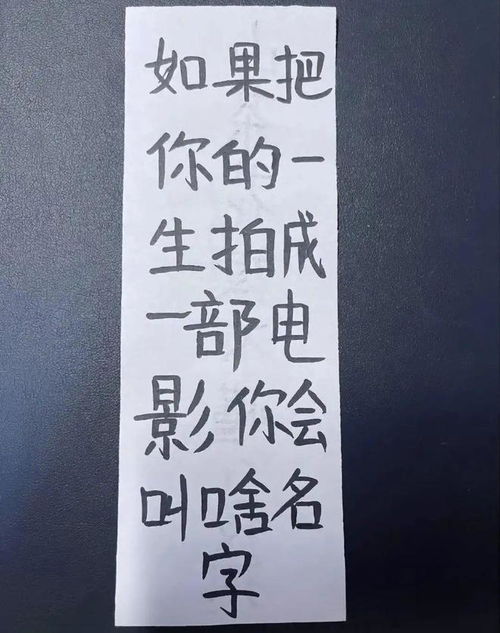 如果把
你的一
生拍成
一部电
影你会
叫啥名
字